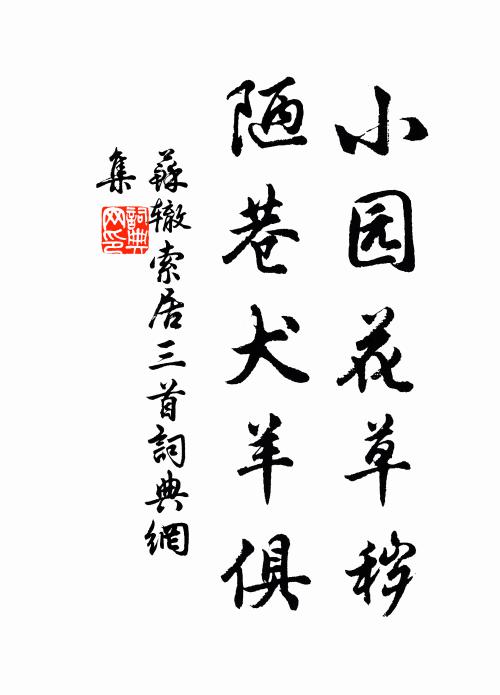 小园花草秽
陋巷犬羊俱
蘇辙索居三首詞典網
集
詞典
网印